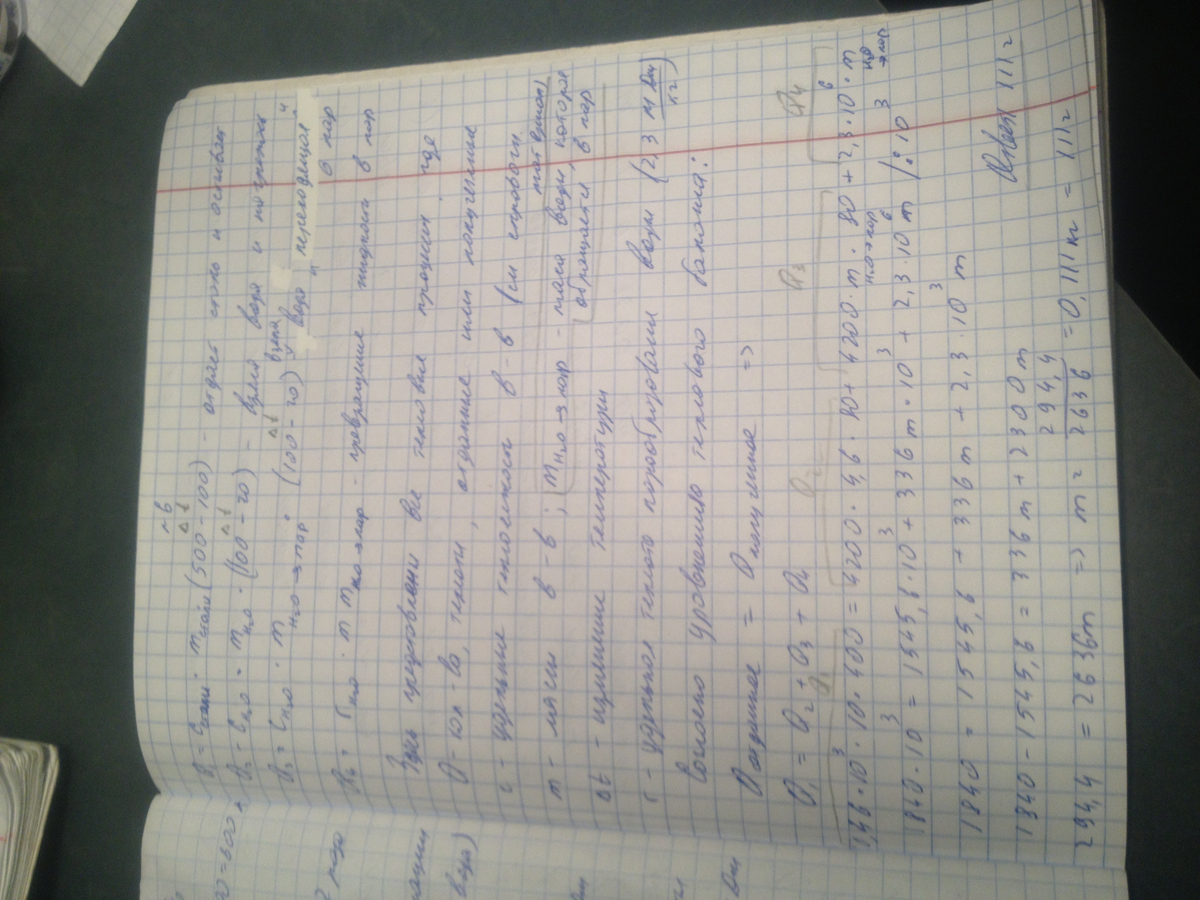 Q₁ = Cстали · mстали (500 - 100) - отдает сталь и остывает
Q₂ = CH₂O · mH₂O · (100 - 20) - взята вода и нагрета
Q₃ = CH₂O · mH₂O→пар · (100 - 20) взята вода, "переходящая" в пар
Q₄ = rH₂O · mH₂O→пар - превращение жидкости в пар
Здесь представлены все тепловые процессы, где
Q - кол-во теплоты, отданные или полученные
c - удельные теплоемкости в-в (из справочн. материал)
m - массы в-в; mH₂O→пар - масса воды, которая обращается в пар
Δt - изменение температуры
r - удельная теплота парообразования воды (2,3 МДж/кг)
Согласно уравнению теплового баланса:
Qотданное = Qполученное =>
Q₁ = Q₂ + Q₃ + Q₄
0,46·10³·10·400 = 4200·4,6·80 + 4200·m·80 + 2,3·10⁶·m
H₂O→пар H₂O→пар
1840·10³ = 1545,6·10³ + 336m·10³ + 2,3·10⁶m /:10³
1840 = 1545,6 + 336m + 2,3·10³m
1840 - 1545,6 = 336m + 2300m
294,4 = 2636m => m = 294,4/2636 = 0,111кг = 111г
Ответ 111г
2 раза
воды)
Дж